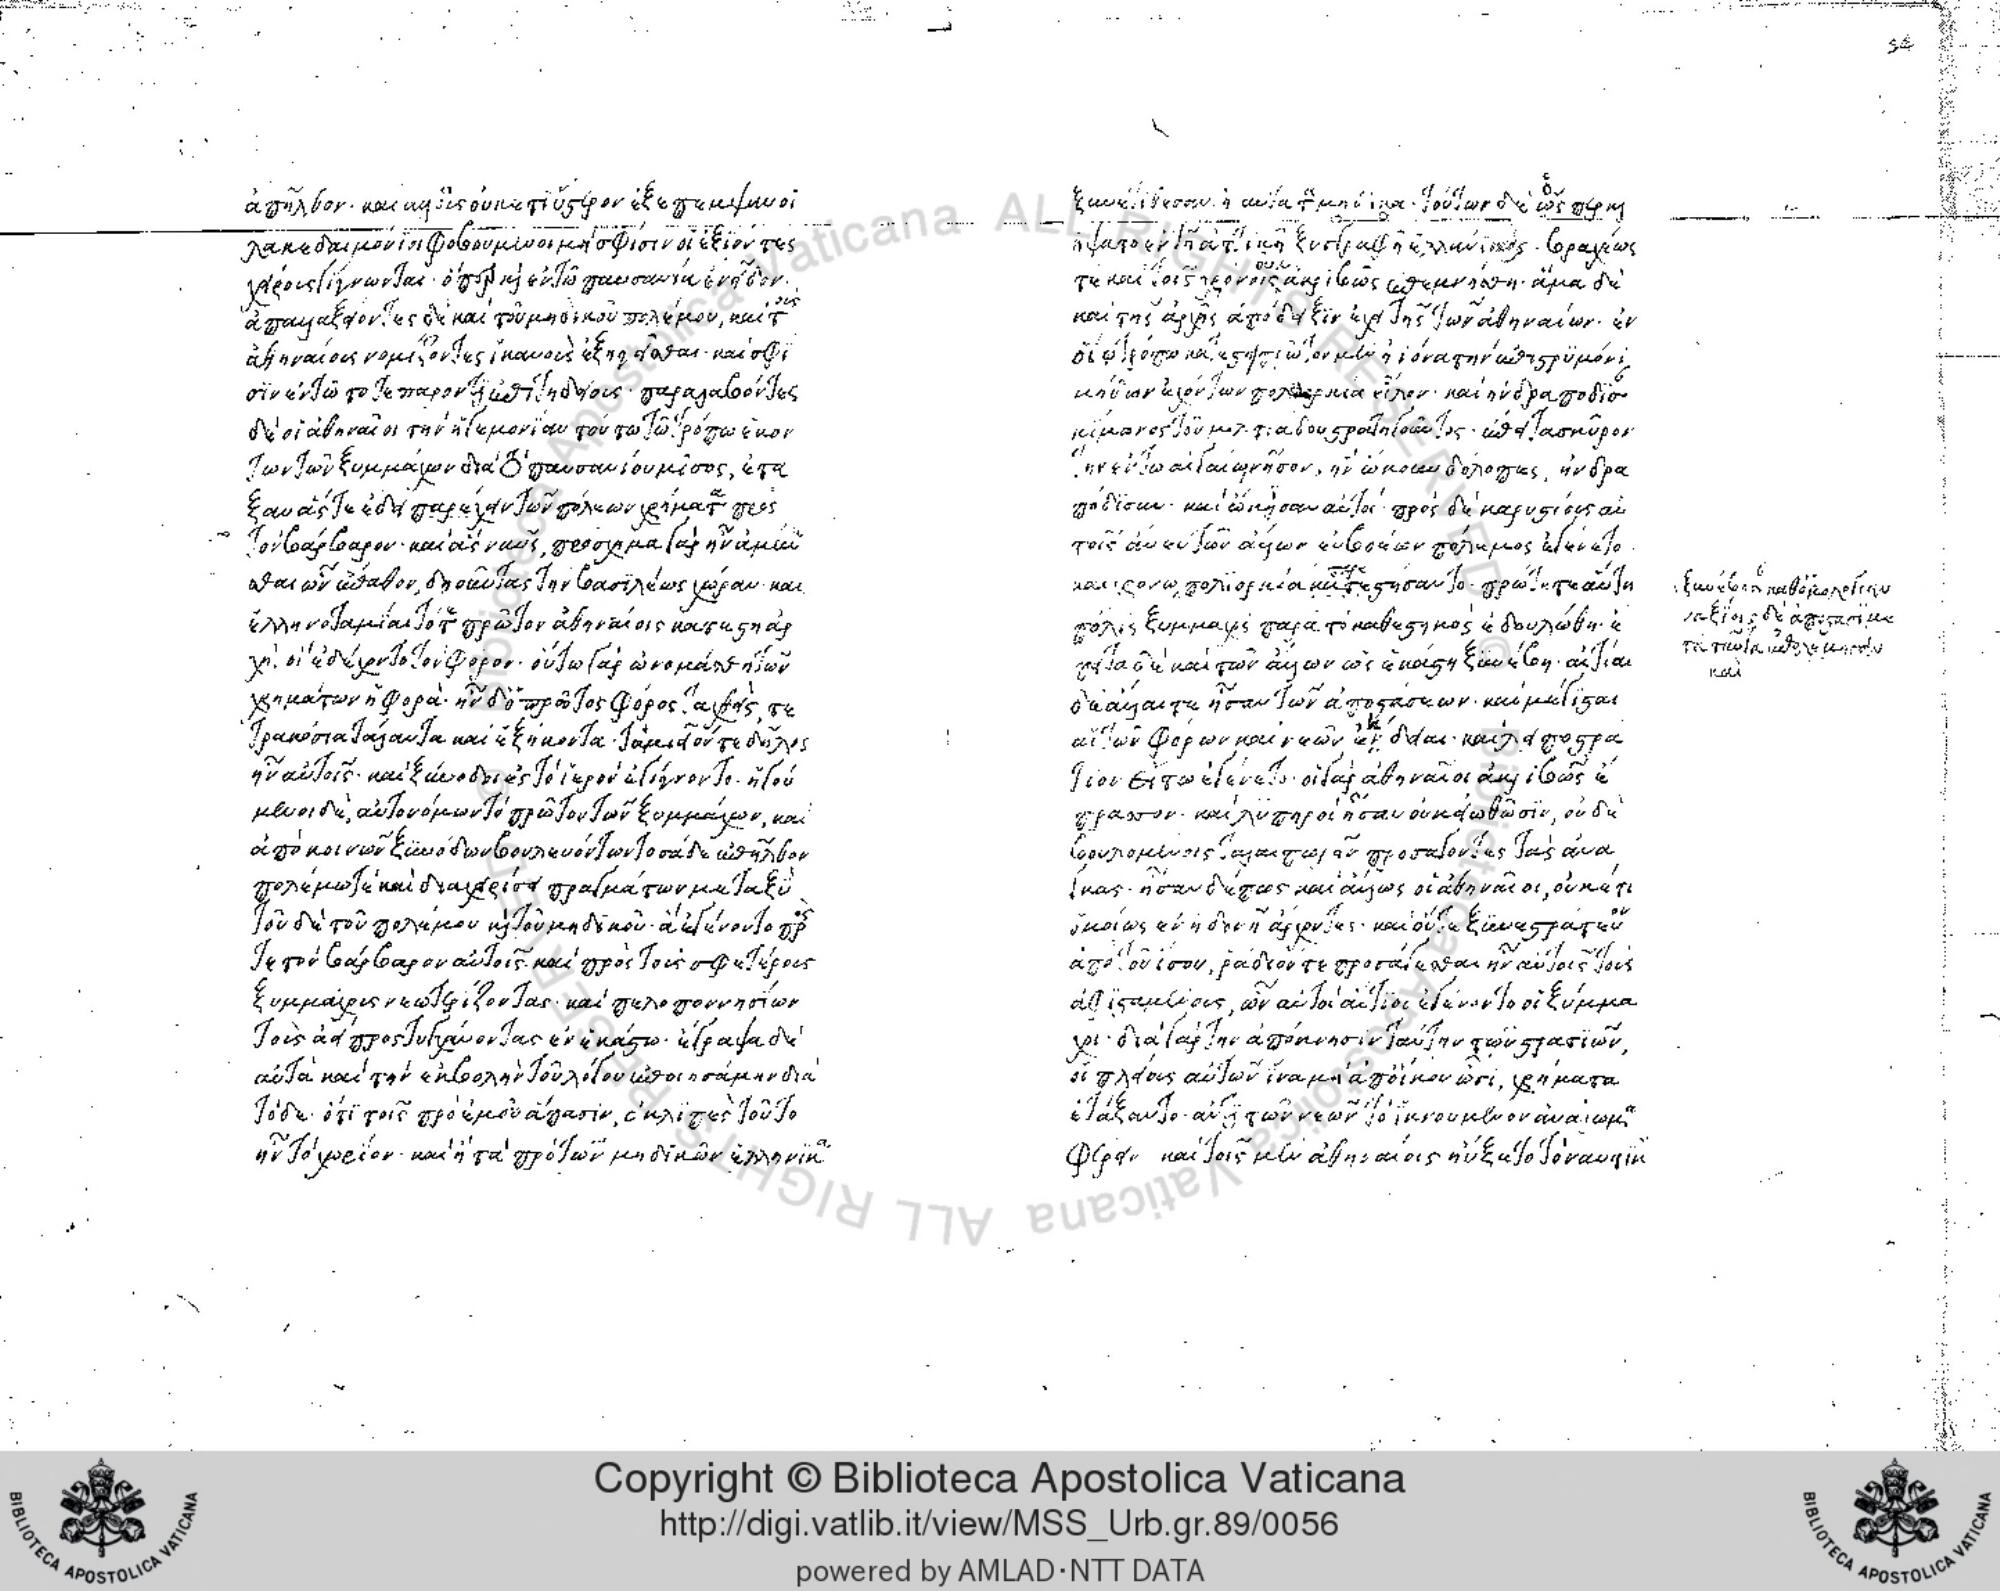 ἀπῆλθον· καὶ ἄλλους οὐκέτι ὕστερον ἐξέπεμψαν οἱ
λακεδαιμόνιοι φοβούμενοι μὴ σφίσιν οἱ ἐξιόντες
χείρους γίγνωνται· ὅπερ καὶ ἐν τῷ παυσανίᾳ ἐνεῖδον·
ἀπαλλαξείοντες δὲ καὶ τοῦ μηδικοῦ πολέμου, καὶ τοὺς
ἀθηναίους νομίζοντες ἱκανοὺς ἐξηγεῖσθαι· καὶ σφί
σιν ἐν τῷ τότε παρόντι ἐπιτηδείους· παραλαβόντες
δὲ οἱ ἀθηναῖοι τὴν ἡγεμονίαν τούτῳ τῷ τρόπῳ ἑκόν
των τῶν ξυμμάχων διὰ τὸ παυσανίου μῖσος, ἔτα
ξαν ἅς τε ἔδει παρέχειν τῶν πόλεων χρήματα πρὸς
τὸν βάρβαρον· καὶ ἃς ναῦς, πρόσχημα γὰρ ἦν ἀμύνε
σθαι ὧν ἔπαθον, δῃοῦντας τὴν βασιλέως χώραν· καὶ
ἑλληνοταμίαι τότε πρῶτον ἀθηναίοις κατέστη ἀρ
χή· οἳ ἐδέχοντο τὸν φόρον· οὕτω γὰρ ὠνομάσθη τῶν
χρημάτων ἡ φορά· ἦν δ' ὁ πρῶτος φόρος ταχθεὶς, τε
τρακόσια τάλαντα καὶ ἑξήκοντα· ταμιεῖόν τε δῆλος
ἦν αὐτοῖς· καὶ ξύνοδοι ἐς τὸ ἱερὸν ἐγίγνοντο· ἡγού
μενοι δὲ, αὐτονόμων τὸ πρῶτον τῶν ξυμμάχων, καὶ
ἀπὸ κοινῶν ξυνόδων βουλευόντων τοσάδε ἐπῆλθον
πολέμῳ τε καὶ διαχειρίσει πραγμάτων μεταξὺ
τοῦδε τοῦ πολέμου καὶ τοῦ μηδικοῦ· ἃ ἐγένοντο πρός
τε τὸν βάρβαρον αὐτοῖς· καὶ πρὸς τοὺς σφετέρους
ξυμμάχους νεωτερίζοντας· καὶ πελοποννησίων
τοὺς ἀεὶ προστυγχάνοντας ἐν ἑκάστῳ· ἔγραψα δὲ
αὐτὰ καὶ τὴν ἐκβολὴν τοῦ λόγου ἐποιησάμην διὰ
τόδε· ὅτι τοῖς πρὸ ἐμοῦ ἅπασιν, ἐκλιπὲς τοῦτο
ἦν τὸ χωρίον· καὶ ἢ τὰ πρὸ τῶν μηδικῶν ἑλληνικὰ
ξυνετίθεσαν ἢ αὐτὰ τὰ μηδικά· τούτων δὲ ὅσπερ καὶ
ἥψατο ἐν τῇ ἀττικῇ ξυγγραφῇ ἑλλάνικος· βραχέως
τε καὶ τοῖς χρόνοις οὐκ ἀκριβῶς ἐπεμνήσθη· ἅμα δὲ
καὶ τῆς ἀρχῆς ἀπόδειξιν ἔχει τῆς τῶν ἀθηναίων· ἐν
οἵῳ τρόπῳ κατέστη· πρῶτον μὲν ἠϊόνα τὴν ἐπὶ στρυμόνι
μήδων ἐχόντων πολιορκίᾳ εἷλον· καὶ ἠνδραπόδισαν
κίμωνος τοῦ μιλτιάδου στρατηγοῦντος· ἔπειτα σκῦρον
τὴν ἐν τῷ αἰγαίῳ νῆσον, ἣν ᾤκουν δόλοπες, ἠνδρα
πόδισαν· καὶ ᾤκησαν αὐτοί· πρὸς δὲ καρυστίους αὐ
τοῖς ἄνευ τῶν ἄλλων εὐβοέων πόλεμος ἐγένετο·
καὶ χρόνῳ πολιορκίᾳ παρεστήσαντο· πρώτη τε αὕτη
πόλις ξυμμαχὶς παρὰ τὸ καθεστηκὸς ἐδουλώθη· ἔ
πειτα δὲ καὶ τῶν ἄλλων ὡς ἑκάστη ξυνέβη· αἰτίαι
δὲ ἄλλαι τε ἦσαν τῶν ἀποστάσεων· καὶ μέγισται
αἱ τῶν φόρων καὶ νεῶν ἔκδειαι· καὶ λειποστρά
τιον εἴ τῳ ἐγένετο· οἱ γὰρ ἀθηναῖοι ἀκριβῶς ἔ
πρασσον· καὶ λυπηροὶ ἦσαν οὐκ εἰωθόσιν, οὐδὲ
βουλομένοις ταλαιπωρεῖν προσάγοντες τὰς ἀνά
γκας· ἦσαν δέ πως καὶ ἄλλως οἱ ἀθηναῖοι, οὐκέτι
ὁμοίως ἐν ἡδονῇ ἄρχοντες· καὶ οὔτε ξυνεστράτευον
ἀπὸ τοῦ ἴσου, ῥᾴδιόν τε προσάγεσθαι ἦν αὐτοῖς τοὺς
ἀφισταμένους, ὧν αὐτοὶ αἴτιοι ἐγένοντο οἱ ξύμμα
χοι· διὰ γὰρ τὴν ἀπόκνησιν ταύτην τῶν στρατιῶν,
οἱ πλείους αὐτῶν ἵνα μὴ ἀπ' οἴκου ὦσι, χρήματα
ἐτάξαντο· ἀντὶ τῶν νεῶν τὸ ἱκνούμενον ἀνάλωμα
φέρειν καὶ τοῖς μὲν ἀθηναίοις ηὔξετο τὸ ναυτικὸν
ξυνέβησαν καθ' ὁμολογίαν
ναξίοις δὲ ἀποστᾶσι με
τὰ ταῦτα ἐπολέμησαν
καὶ
Copyright © Biblioteca Apostolica Vaticana
http://digi.vatlib.it/view/MSS_Urb.gr.89/0056
powered by AMLAD·NTT DATA
BIBLIOTECA APOSTOLICA VATICANA
BIBLIOTECA APOSTOLICA VATICANA